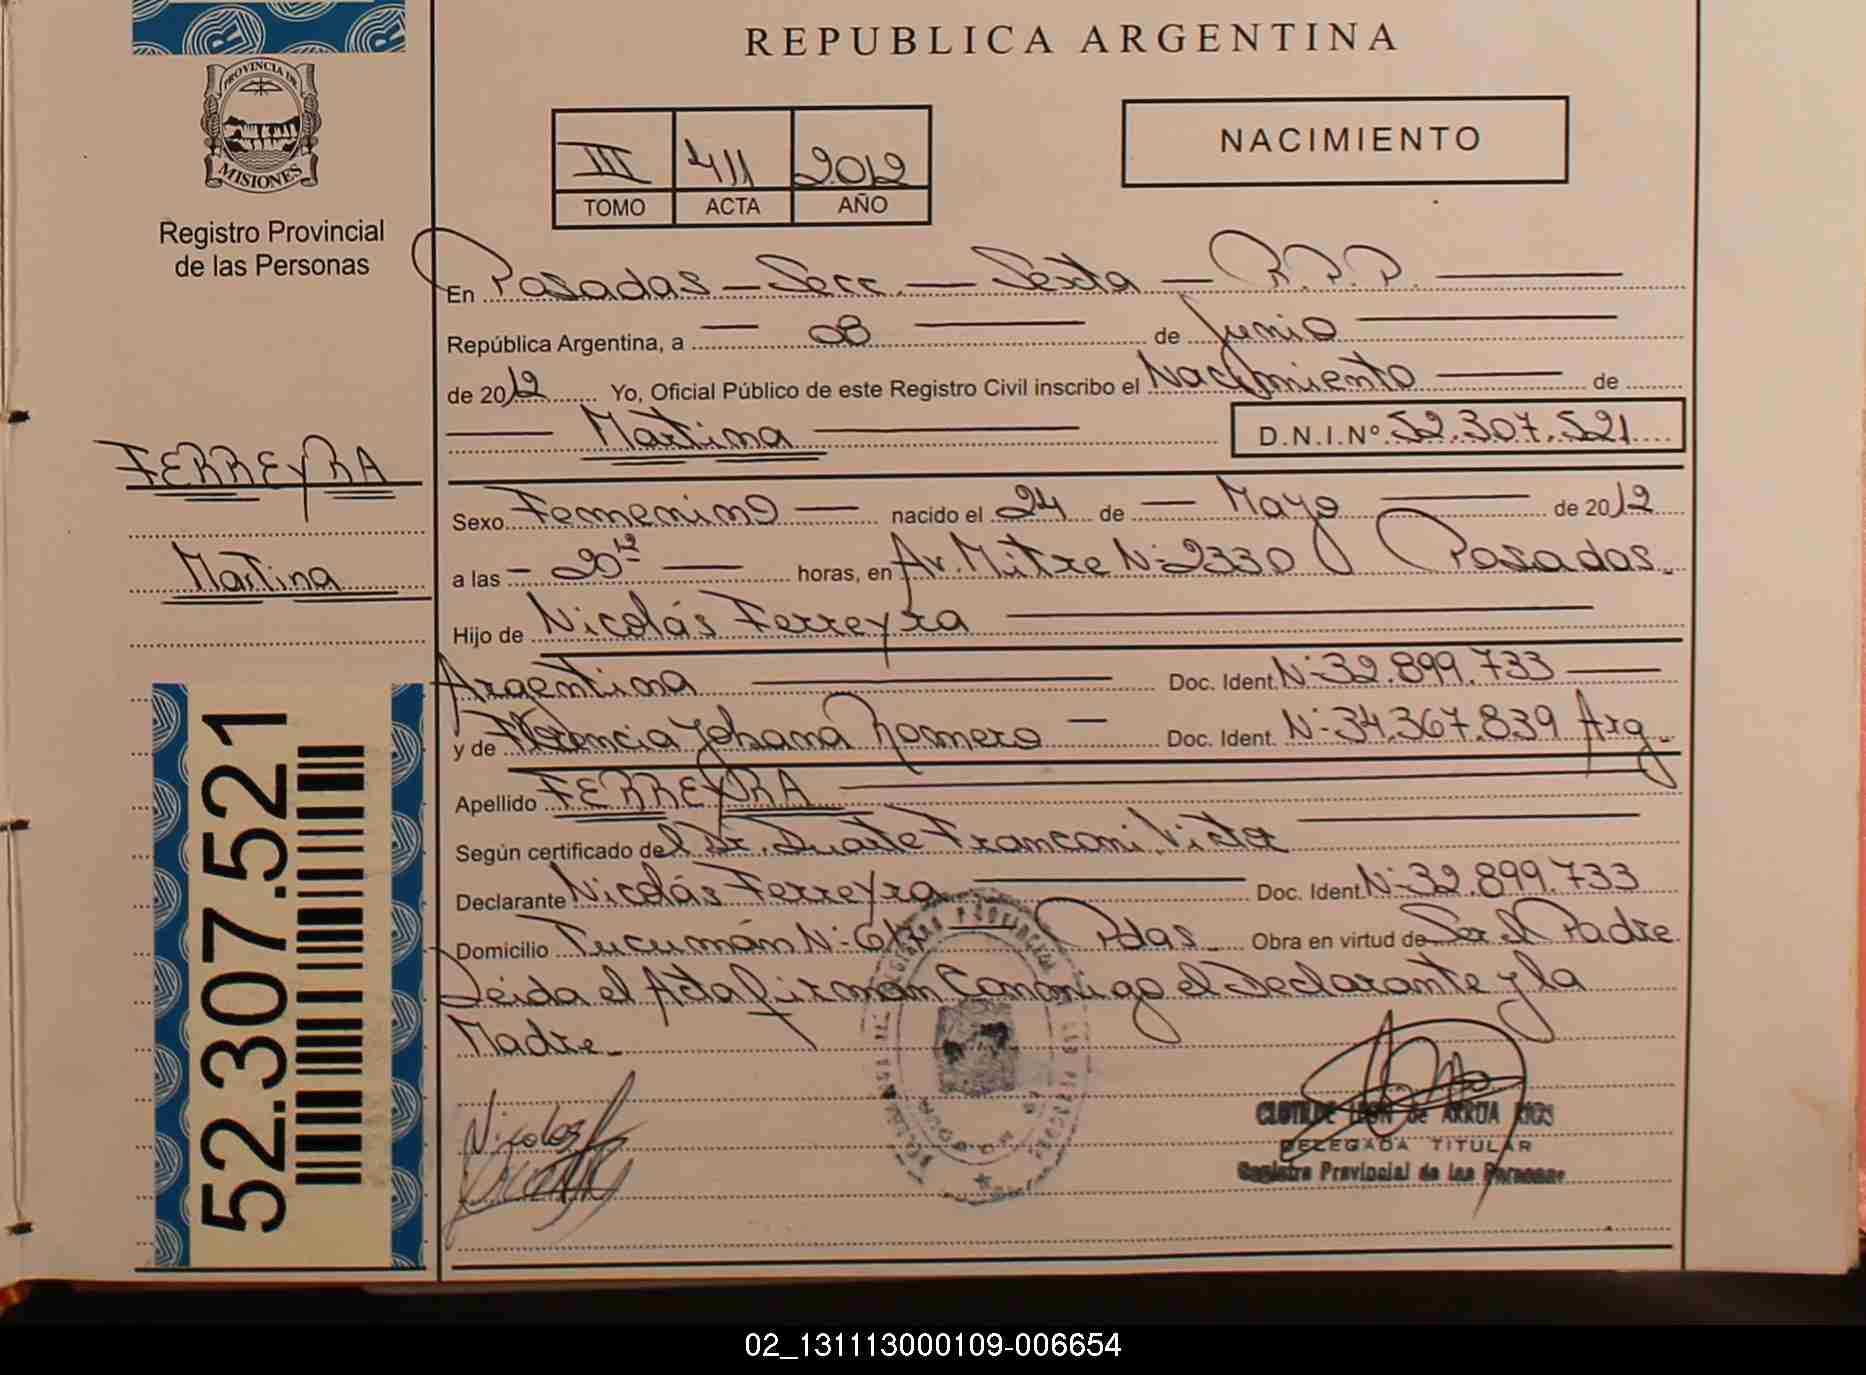 REPUBLICA ARGENTINA
PROVINCIA DE
MISIONES
Registro Provincial
de las Personas
III 411 2012
TOMO ACTA AÑO
NACIMIENTO
En Posadas - Secc. - Sexta - R.P.P.
República Argentina, a - 08 - de Junio
de 2012 Yo, Oficial Público de este Registro Civil inscribo el Nacimiento - de
Martina
D.N.I.Nº 52.307.521
FERREYRA
Martina
Sexo Femenino - nacido el 24 de - Mayo - de 2012
a las - 20 12 - horas, en Av. Mitre Nº 2330 Posadas.
Hijo de Nicolás Ferreyra
Argentina Doc. Ident. Nº 32.899.733
y de Florencia Johana Romero - Doc. Ident. Nº 34.367.839 Arg.
Apellido FERREYRA
Según certificado del Dr. Duarte Franconi, Victor
Declarante Nicolás Ferreyra Doc. Ident. Nº 32.899.733
Domicilio Tucumán Nº Pdas. Obra en virtud de Ser el Padre
Leida el Acta firman Conmigo el Declarante y la
Madre.
52.307.521
Nicolas
CLOTILDE LEON de ARRUA RIOS
DELEGADA TITULAR
Registro Provincial de las Personas
02_131113000109-006654